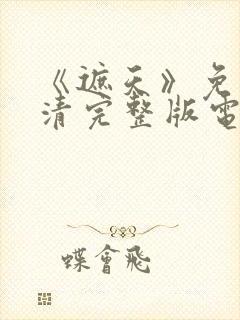 《遮天》免
清完整版電
蝶會飛